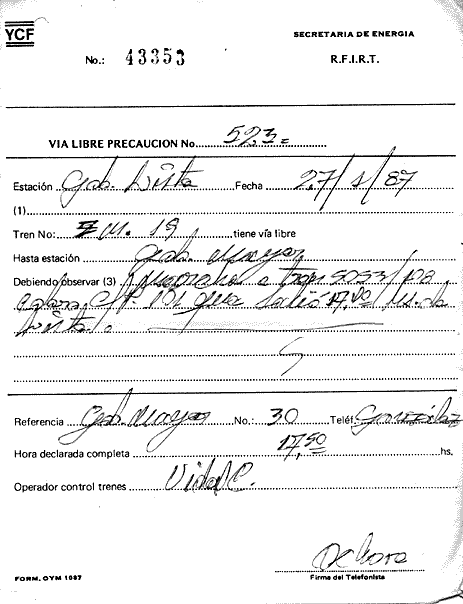 YCF
SECRETARIA DE ENERGIA
No.: 43353
R.F.I.R.T.
VIA LIBRE PRECAUCION No. 523=
Estación Gob. Lista Fecha 27/1/87
(1)
Tren No: M. 19 tiene vía libre
Hasta estación Gob. Mayer
Debiendo observar (3) a tren 5053/
que salió 17,40 hs. de
Lista.
Referencia Gob. Mayer No.: 30 Teléf. González
Hora declarada completa 17,50 hs.
Operador control trenes Vidal C.
Firma del Telefonista
FORM. OYM 1087